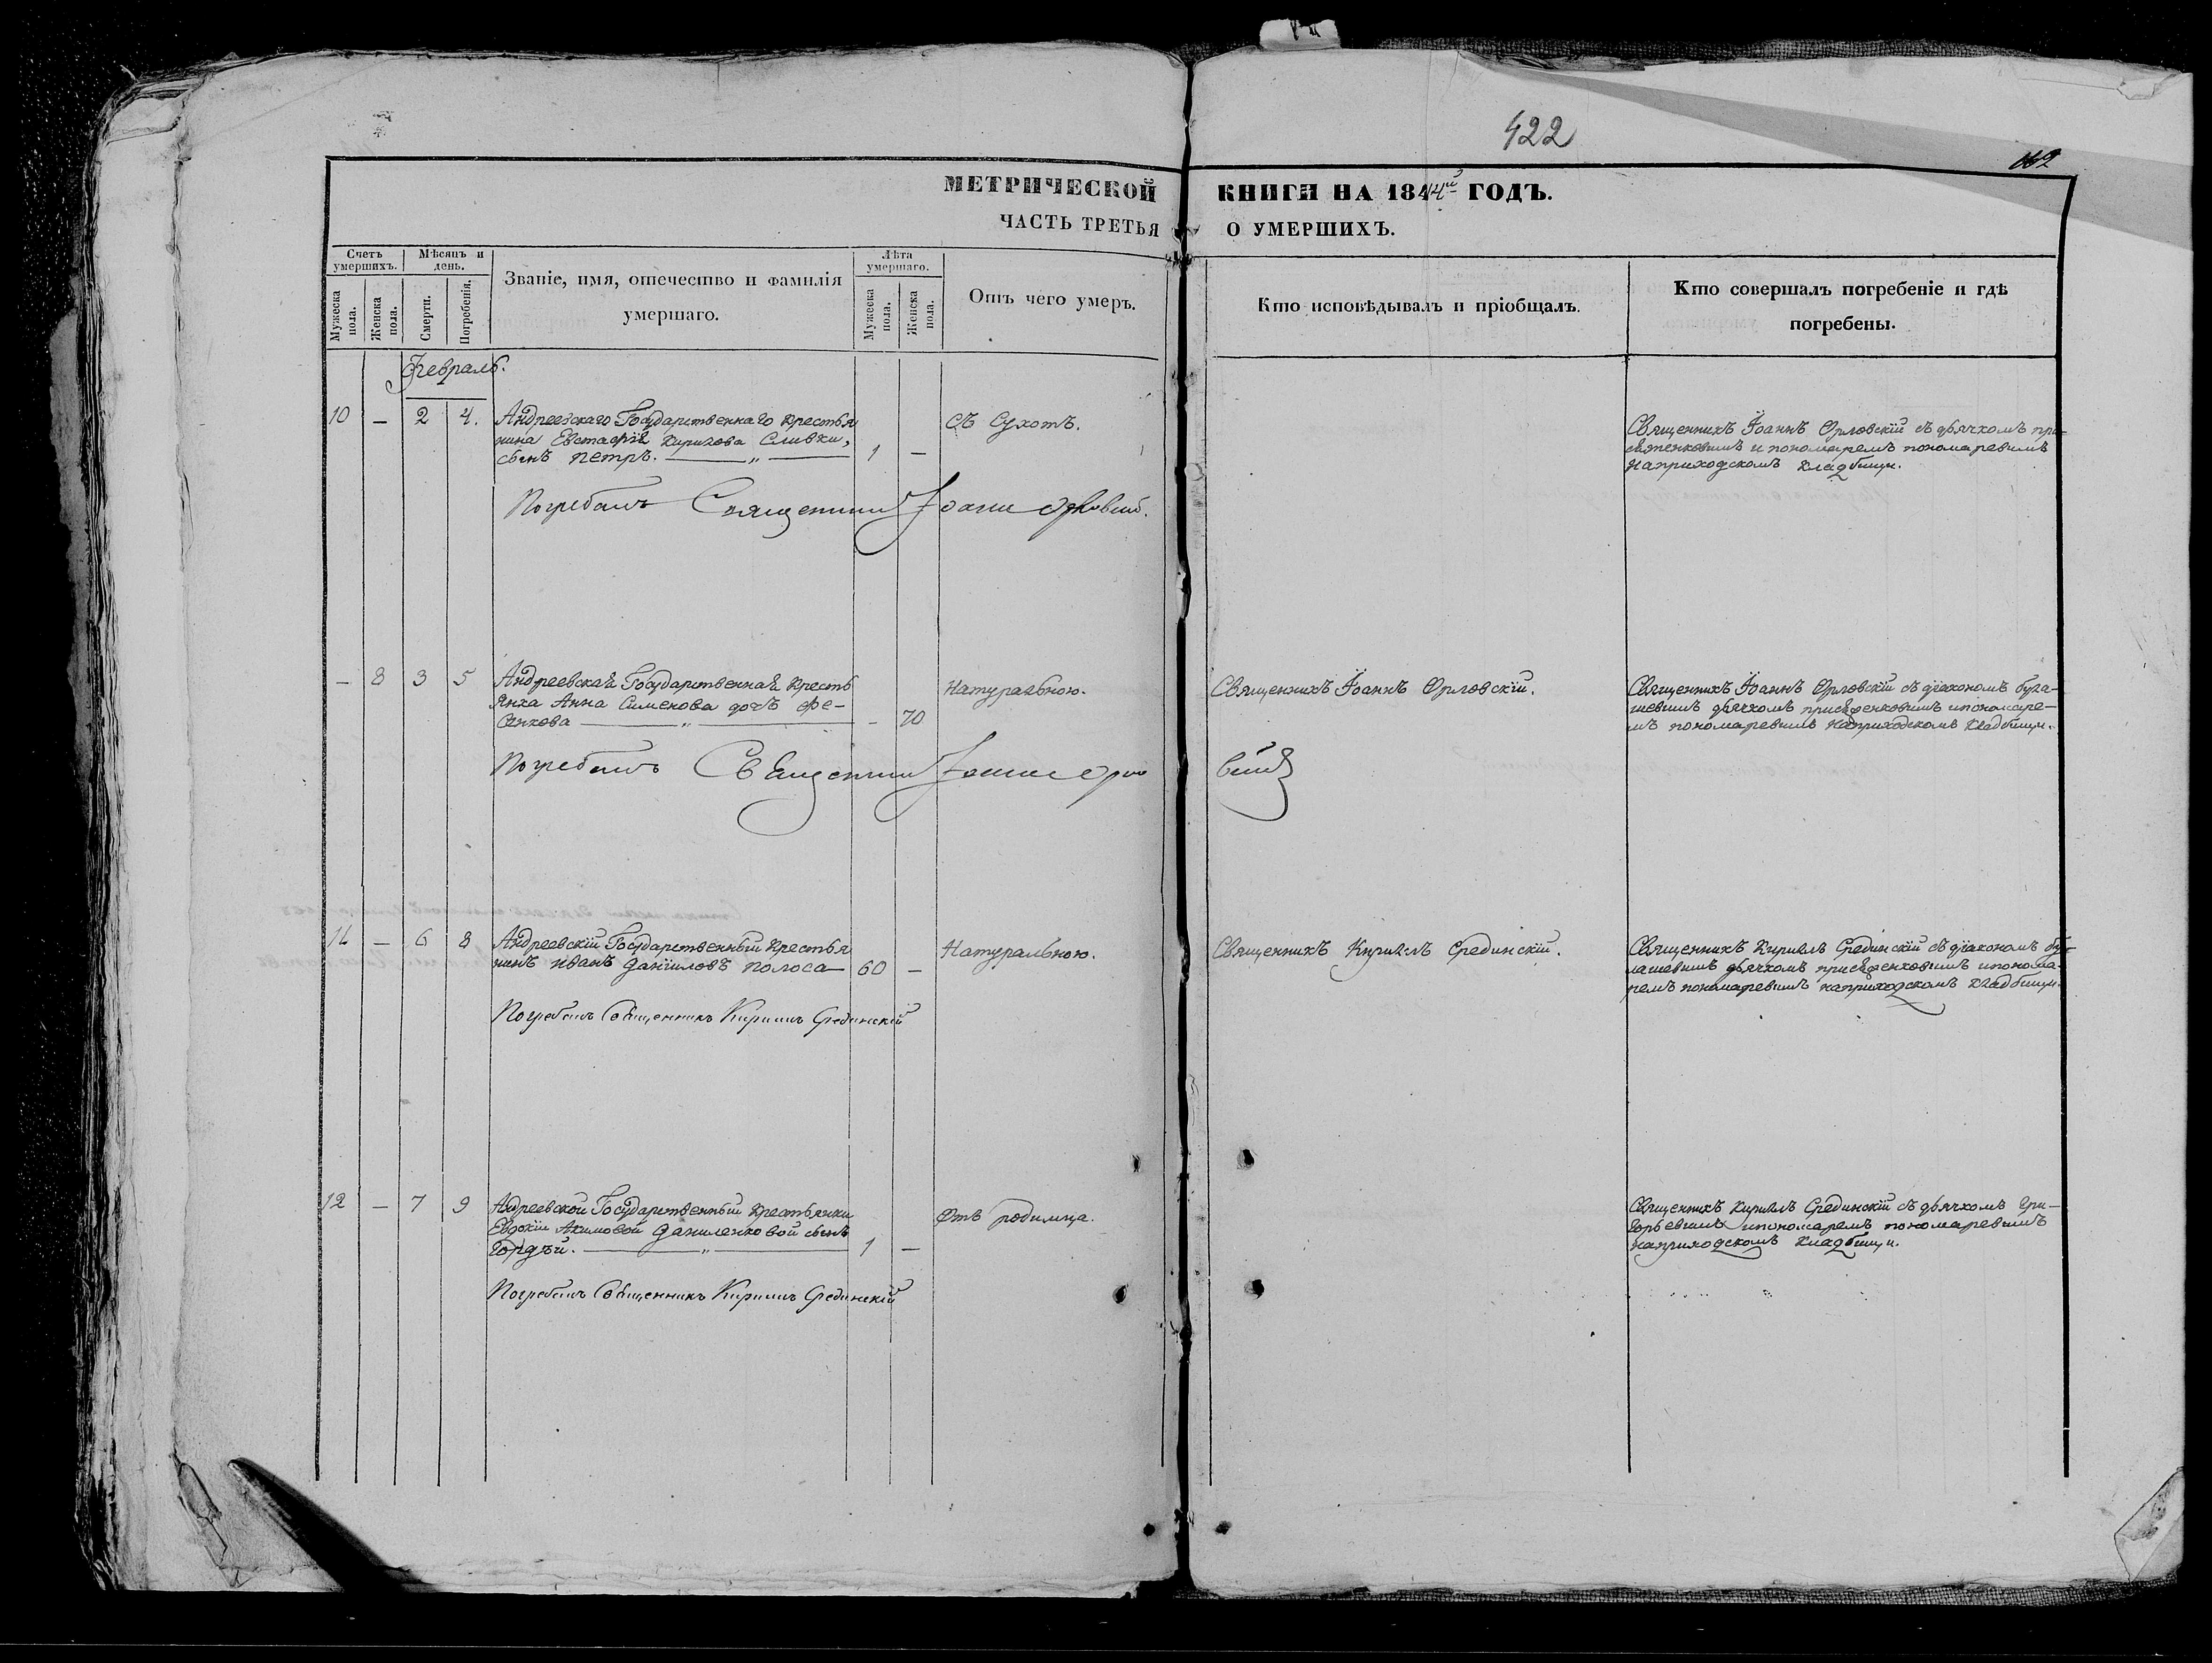 422
МЕТРИЧЕСКОЙ КНИГИ НА 1844й ГОДЪ.
ЧАСТЬ ТРЕТЬЯ О УМЕРШИХЪ.
Счетъ умершихъ.
Мужеска пола.
Женска пола.
Мѣсяцъ и день.
Смерти.
Погребенія.
Званіе, имя, отечество и фамилія
умершаго.
Лѣта умершаго.
Мужеска пола.
Женска пола.
Отъ чего умеръ.
Кто исповѣдывалъ и пріобщалъ.
Кто совершалъ погребеніе и гдѣ
погребены.
Февраль.
10 — 2 4. Андреевскаго Государственнаго крестья
нина Евстафія Кирилова Сливки,
сынъ Петръ. 1 —
Съ Сухотъ.
Священникъ Іоаннъ Орловскій съ дьячкомъ при-
и пономаремъ Пономаревымъ
на приходскомъ кладбищи.
Погребалъ Священникъ Іоаннъ Орловскій.
— 8 3 5 Андреевская Государственная кресть
янка Анна Сименова дочь Фе-
сенкова — 70
Натуральною.
Священникъ Іоаннъ Орловскій.
Священникъ Іоаннъ Орловскій съ діакономъ
дьячкомъ и пономаре-
мъ Пономаревымъ на приходскомъ кладбищи.
Погребалъ Священникъ Іоаннъ Орловскій
11 — 6 8 Андреевскій Государственный крестья
нинъ Иванъ Даніиловъ Полоса 60 —
Натуральною.
Священникъ Кириллъ Срединскій.
Священникъ Кириллъ Срединскій съ діакономъ
дьячкомъ и понома-
ремъ Пономаревымъ на приходскомъ кладбищи.
Погребалъ Священникъ Кириллъ Срединскій
12 — 7 9 Андреевской Государственный крестьянки
Евдокіи Акимовой Даниленковой сынъ
Гордѣй. 1 —
Отъ родимца.
Священникъ Кириллъ Срединскій съ дьячкомъ Гри-
горьевымъ и пономаремъ Пономаревымъ
на приходскомъ кладбищи.
Погребалъ Священникъ Кириллъ Срединскій